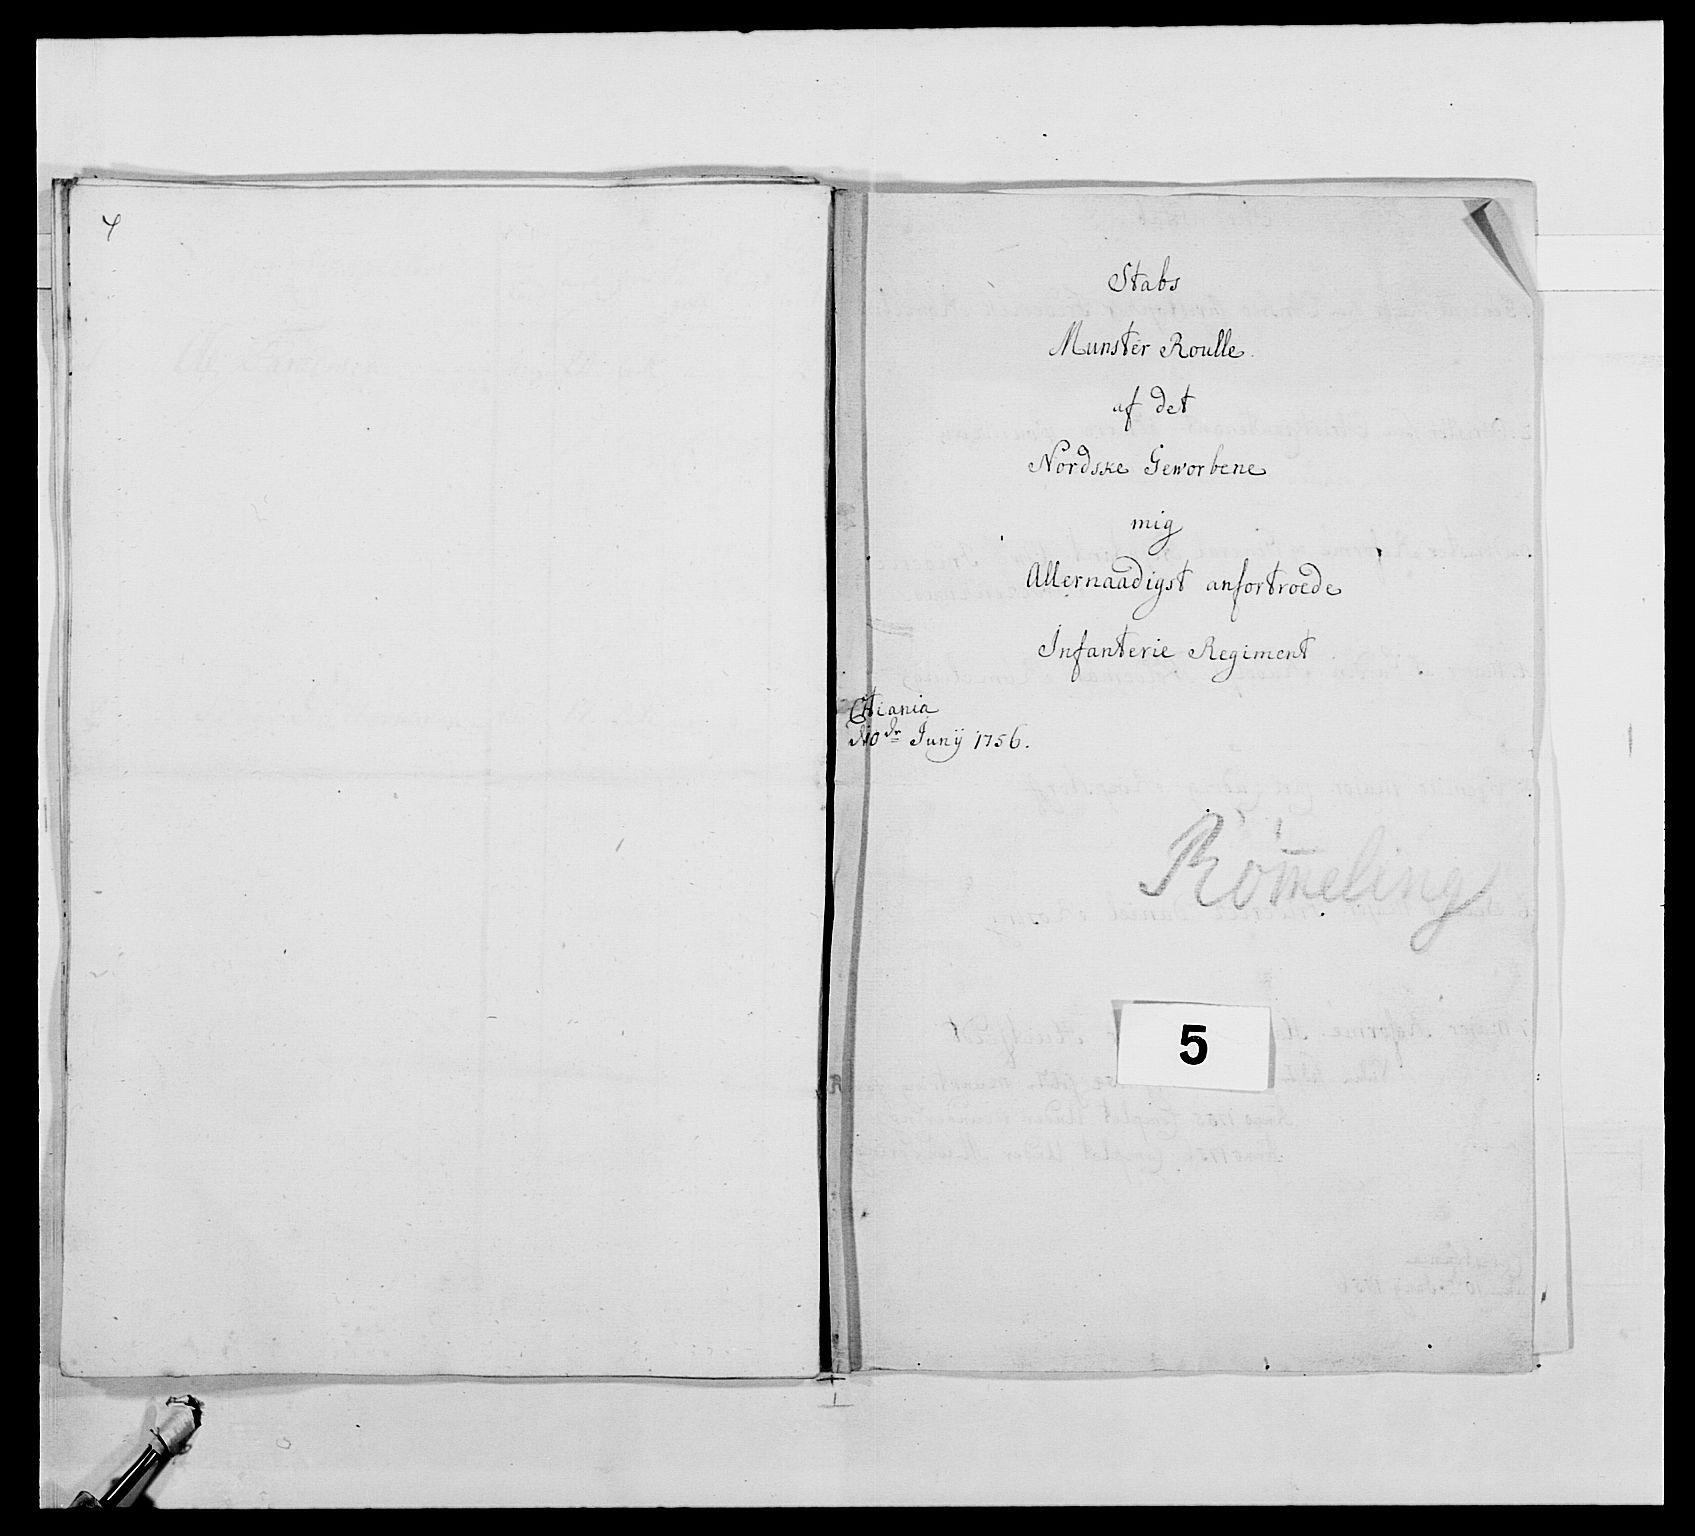 4
Stabs
Munster Roulle.
af det
Nordske Geworbene
mig
Allernaadigst anfortroede
Infanterie Regiment
Chiania
d 10de Junij 1756.
Römeling
5